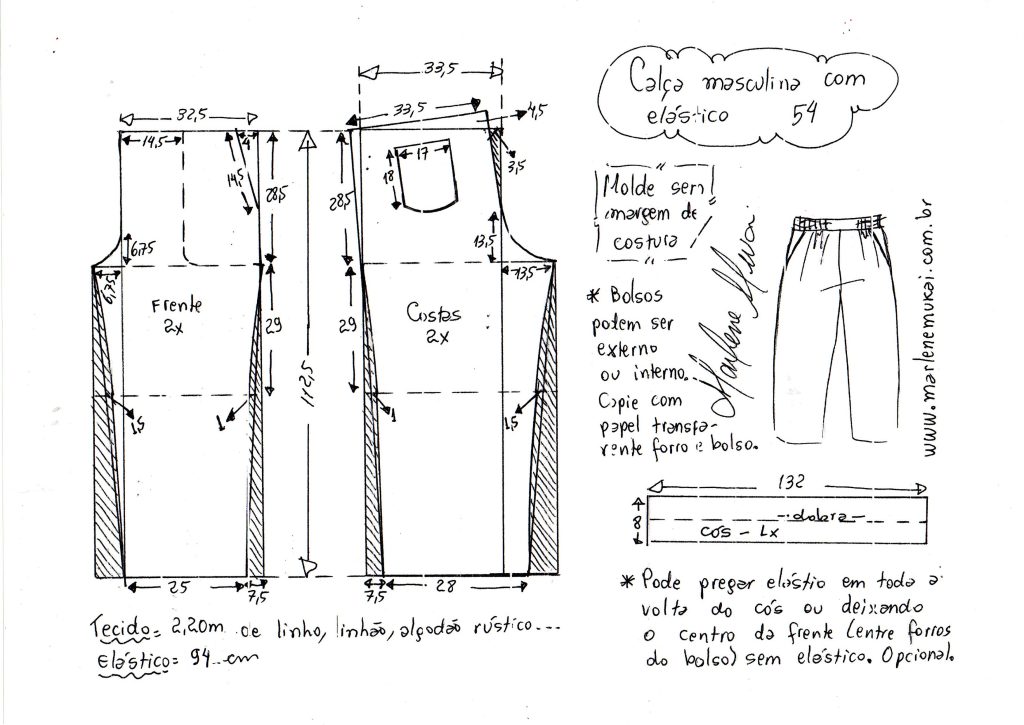 Calça masculina com
elástico 54
Molde sem
margem de
costura
Marlene Mukai
www.marlenemukai.com.br
* Bolsos
podem ser
externo
ou interno.
Copie com
papel transpa-
rente forro e bolso.
33,5
33,5
4,5
32,5
14,5
4
14,5
28,5
28,5
17
18
3,5
6,75
6,75
13,5
13,5
Frente
2x
Costas
2x
29
29
112,5
1,5
1
1
1,5
25
7,5
7,5
28
132
8
dobra
cós - 1x
Tecido = 2,20m de linho, linhão, algodão rústico...
Elástico = 94 cm
* Pode pregar elástio em toda a
volta do cós ou deixando
o centro da frente (entre forros
do bolso) sem elástico. Opcional.